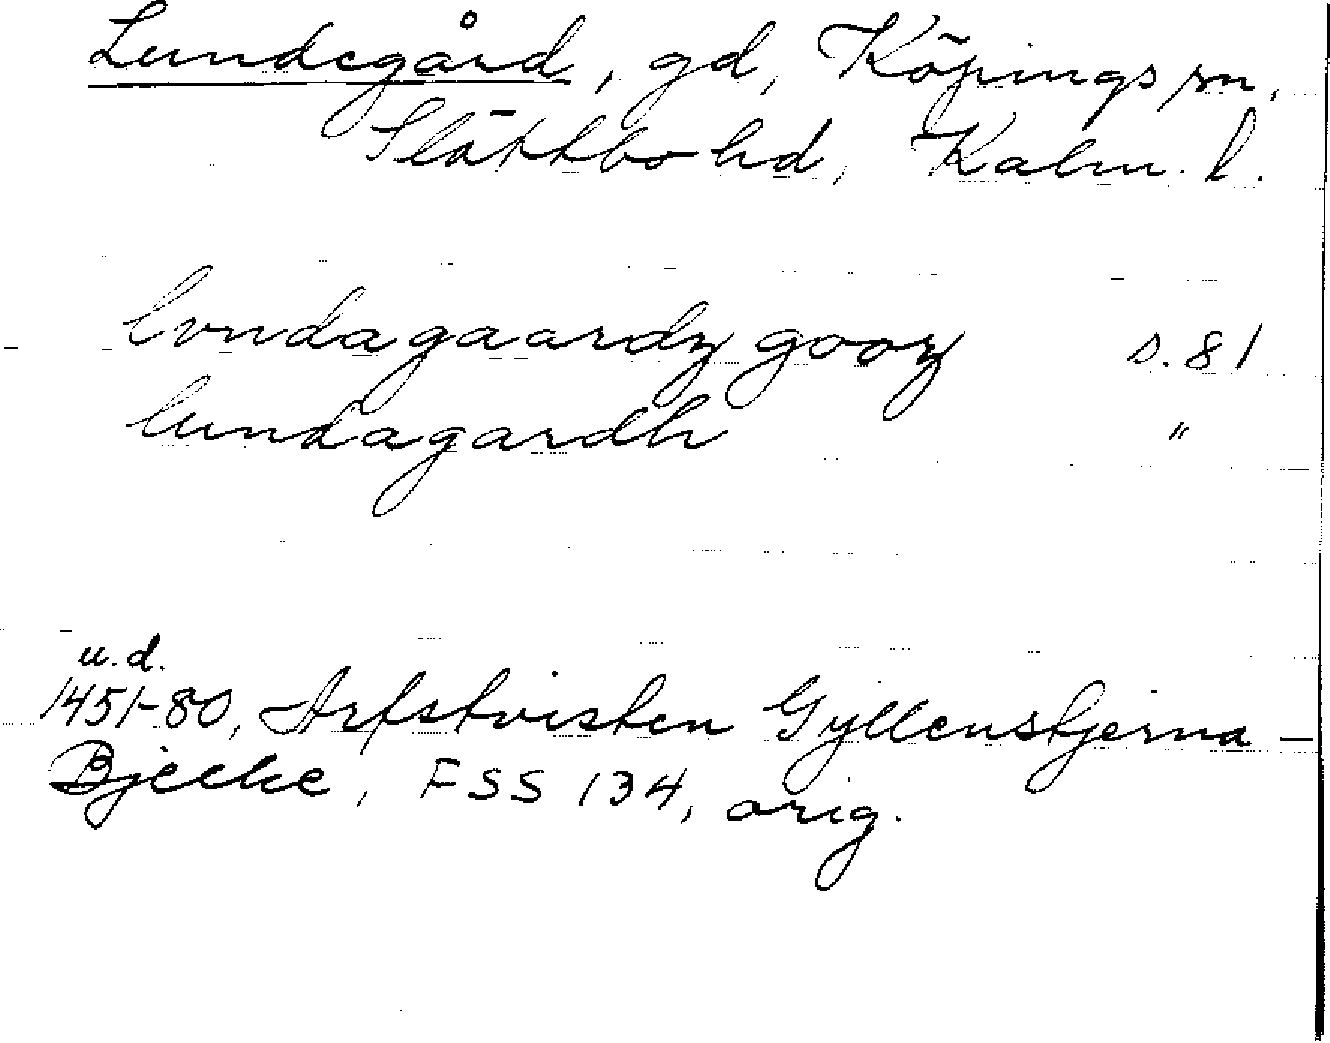 Lundegård, gd, Köpings sn,
Slättbo hd, Kalm. l.
lvndagaardz gooz s. 81
lundagardh "
u.d.
1451-80, Arfstvisten Gyllenstjerna -
Bjelke, FSS 134, orig.